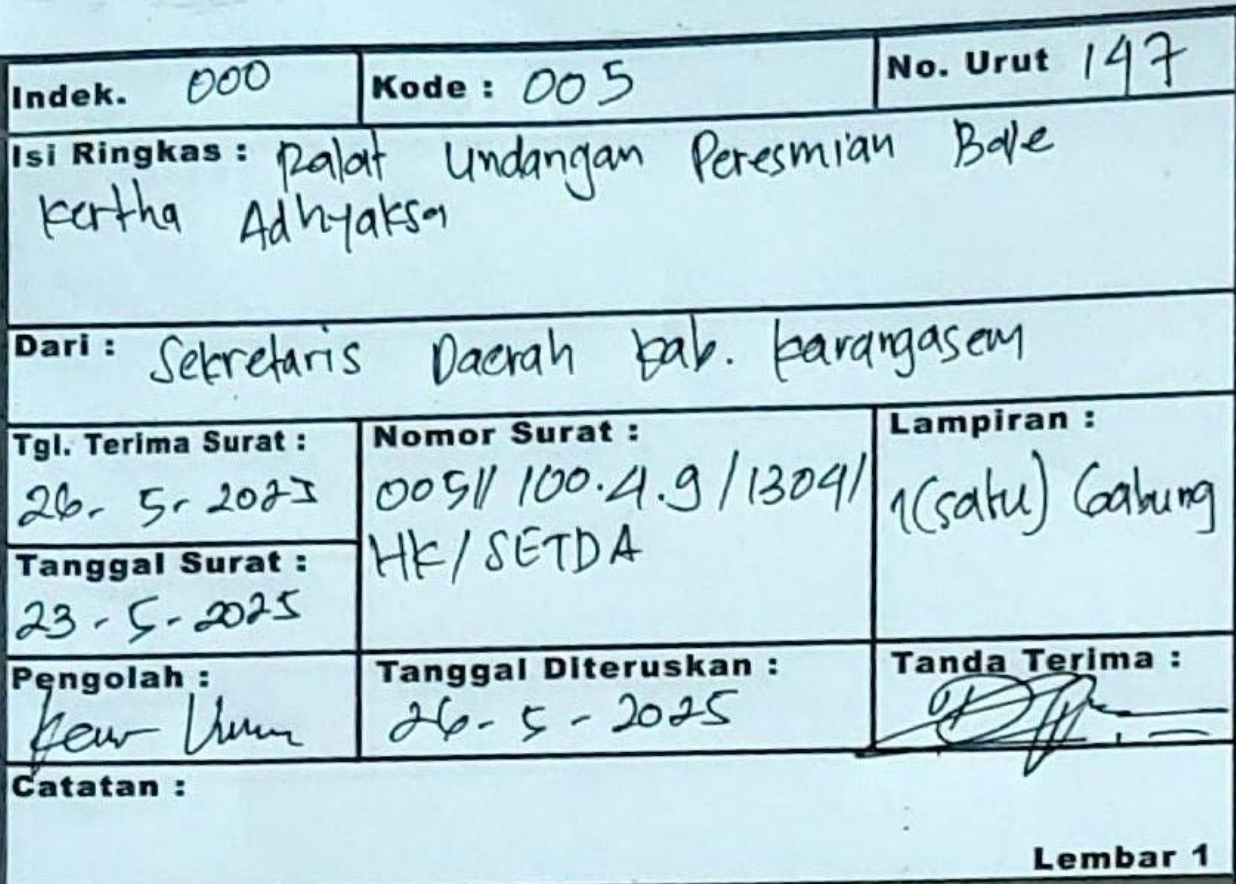 Indek. 000
Kode : 005
No. Urut 147
Isi Ringkas : Ralat Undangan Peresmian Bale
Kertha Adhyaksa
Dari : Sekretaris Daerah Kab. Karangasem
Tgl. Terima Surat :
26-5-2025
Nomor Surat :
005// 100.4.9/1304/
HK/SETDA
Lampiran :
1(satu) Gabung
Tanggal Surat :
23-5-2025
Pengolah :
Kaur Umum
Tanggal Diteruskan :
26-5-2025
Tanda Terima :
Catatan :
Lembar 1